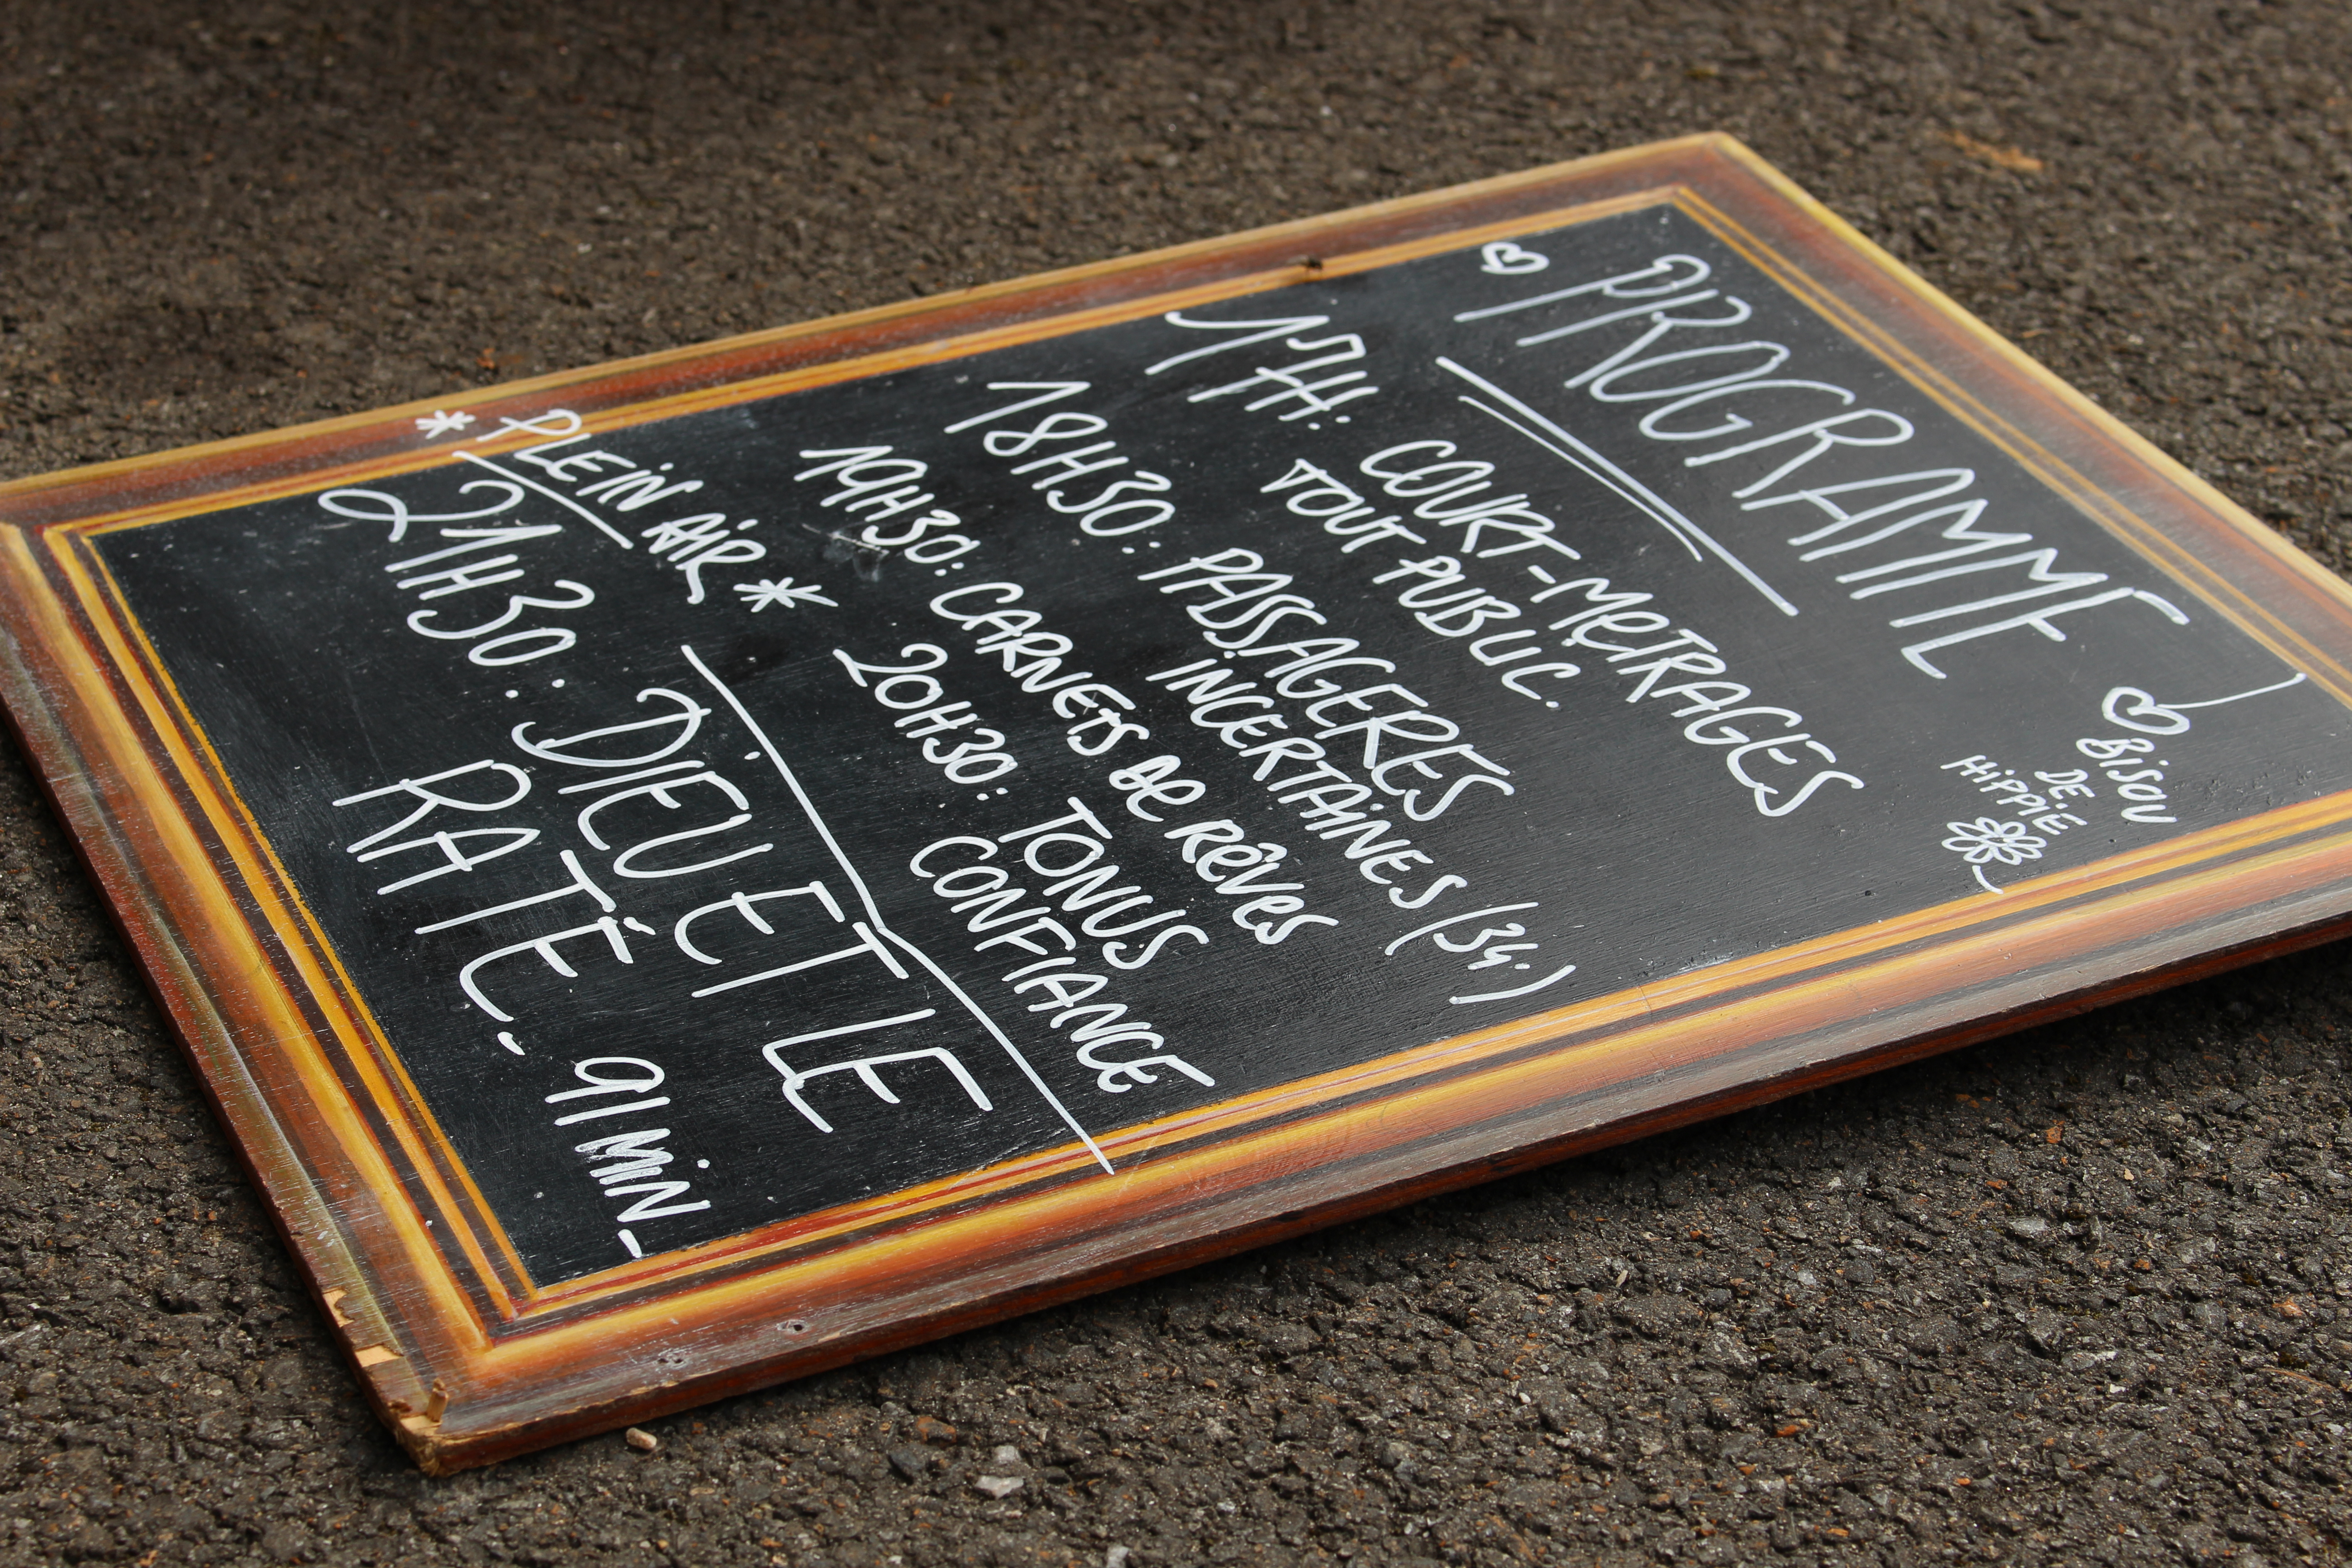 PROGRAMME
BISOU
DE
HIPPIE
17H: COURT-METRAGES
TOUT PUBLIC.
18H30: PASSAGERES
INCERTAINES (34')
19H30: CARNETS DE RÊVES
20H30: TONUS
CONFIANCE
* PLEIN AIR *
21H30: DIEU ET LE
RATÉ. 91 MIN